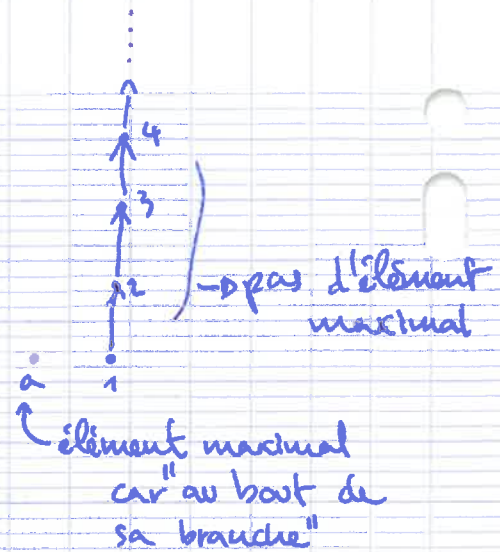 4
3
2
→ pas d'élément
maximal
a 1
élément maximal
car "au bout de
sa branche"